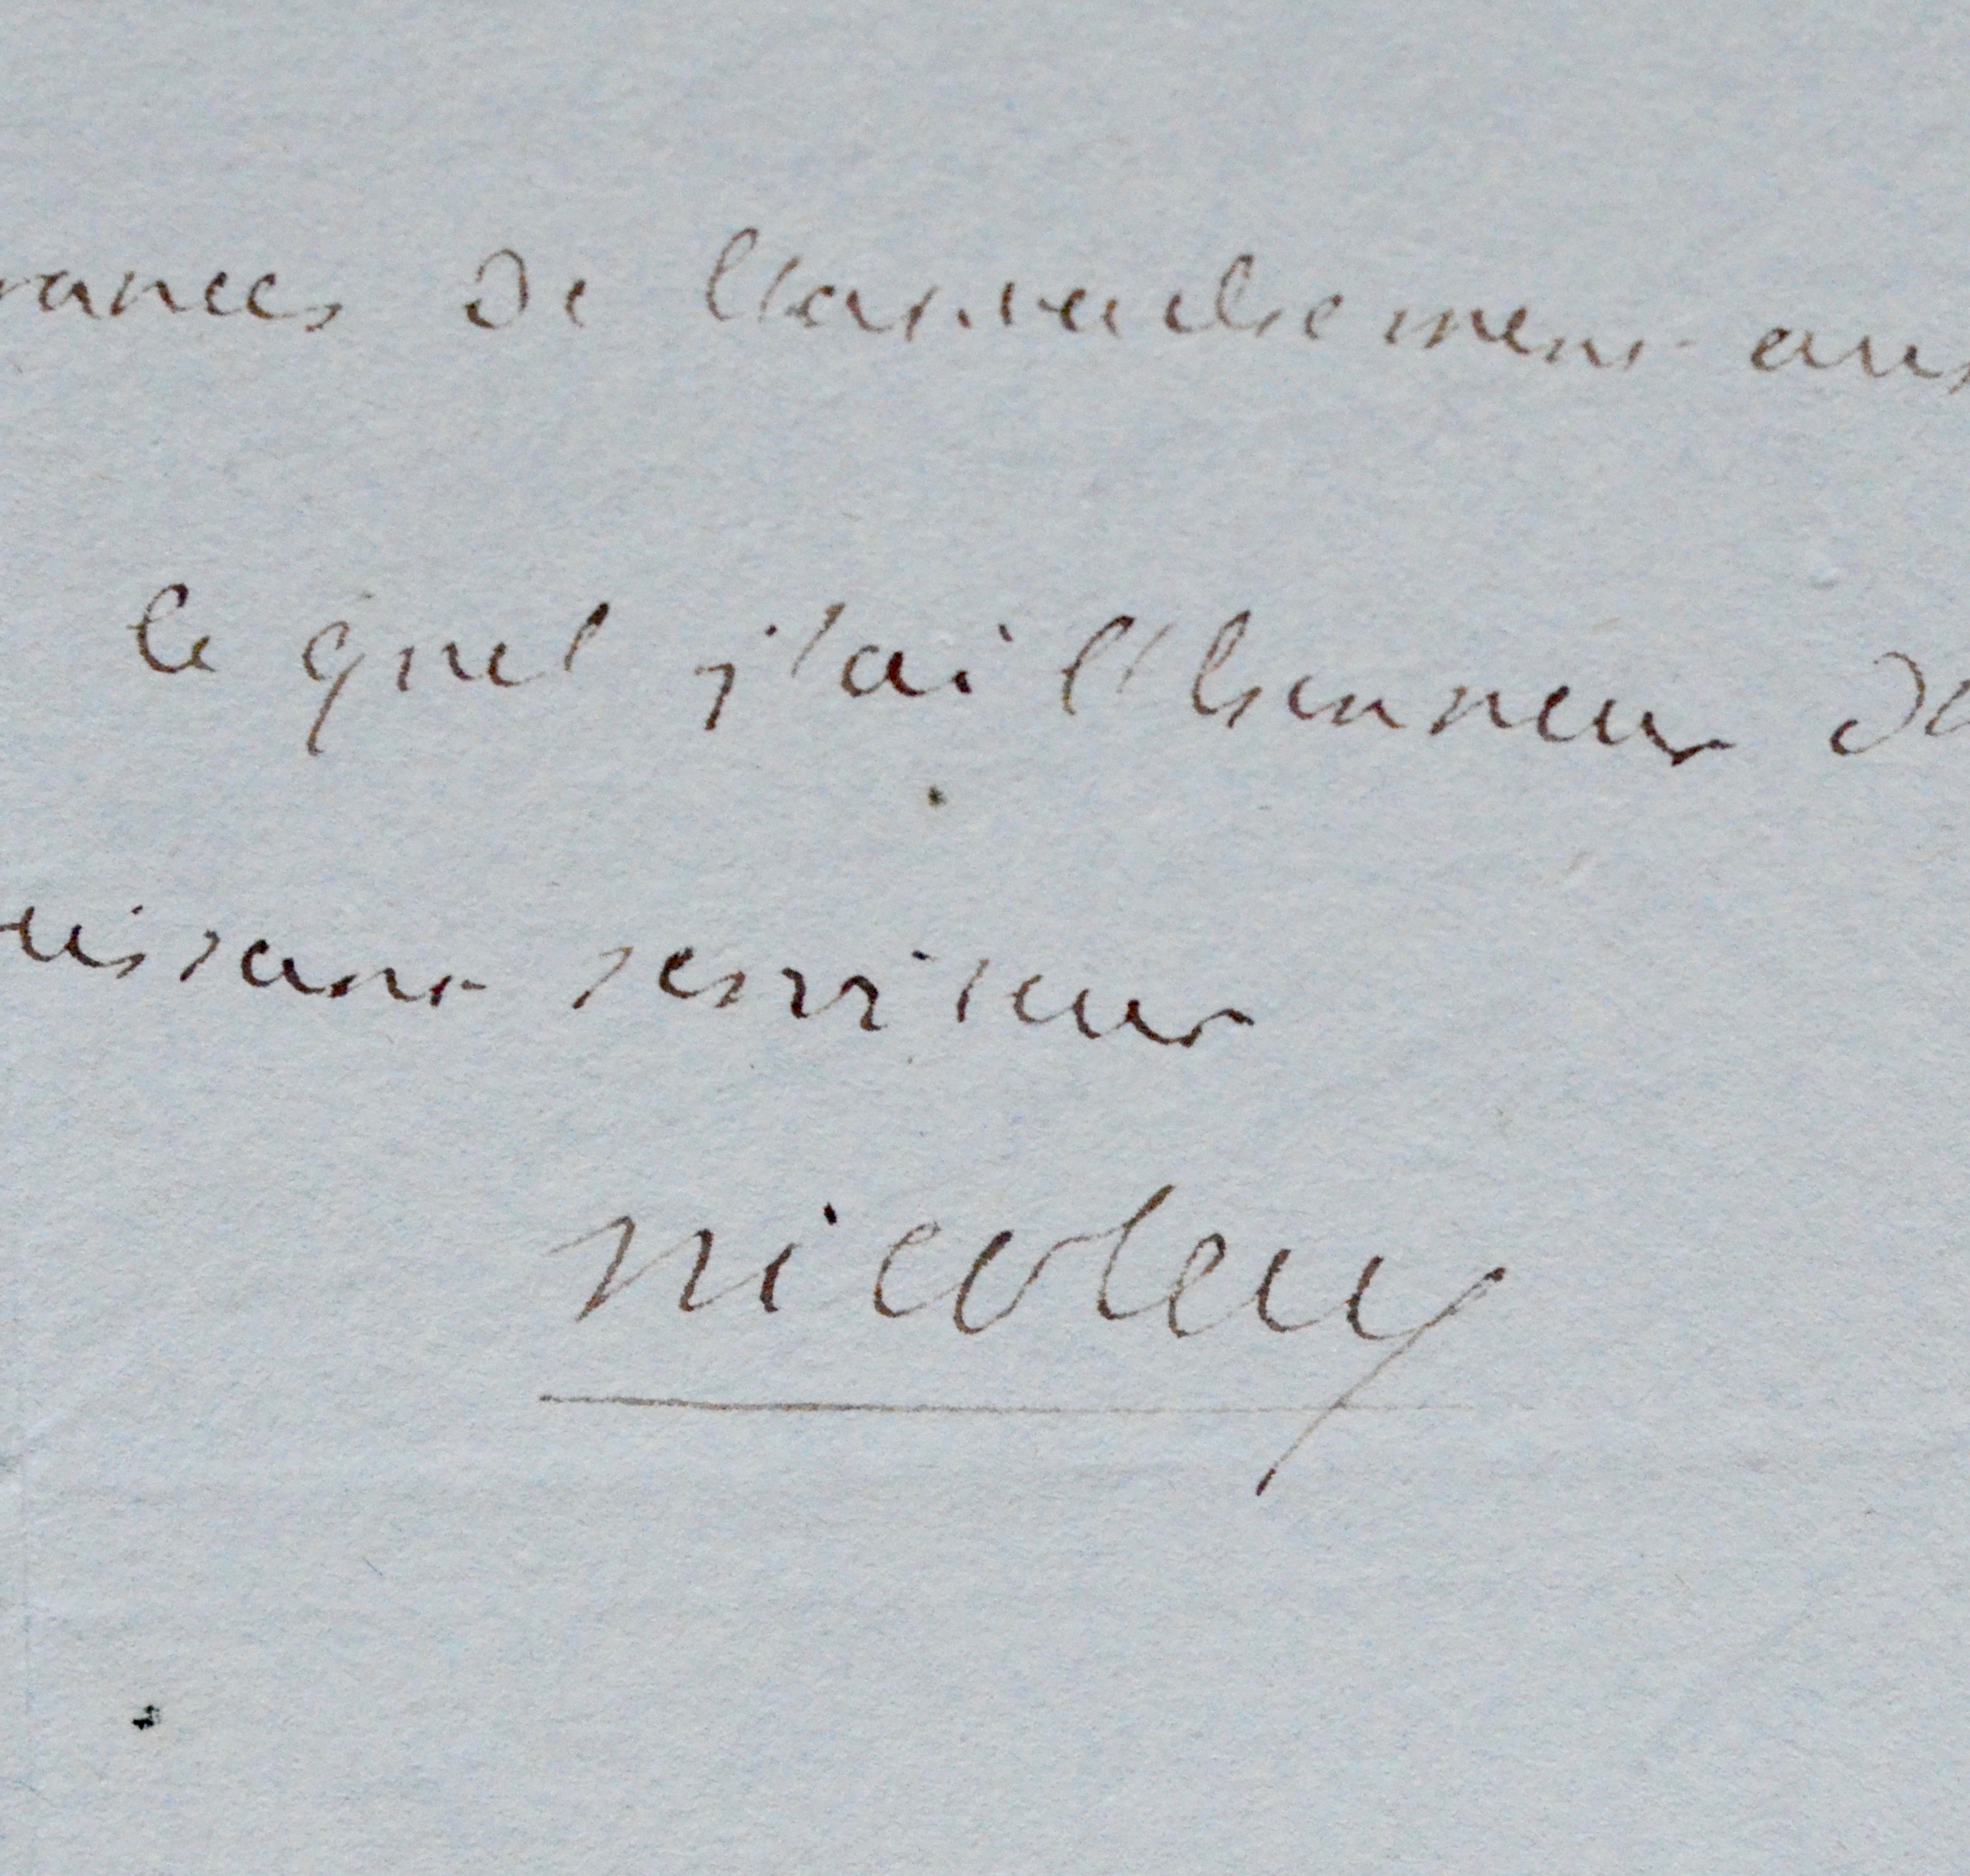 rances de l'attachement au
le quel j'ai l'honneur de
eissant serviteur
nicolay